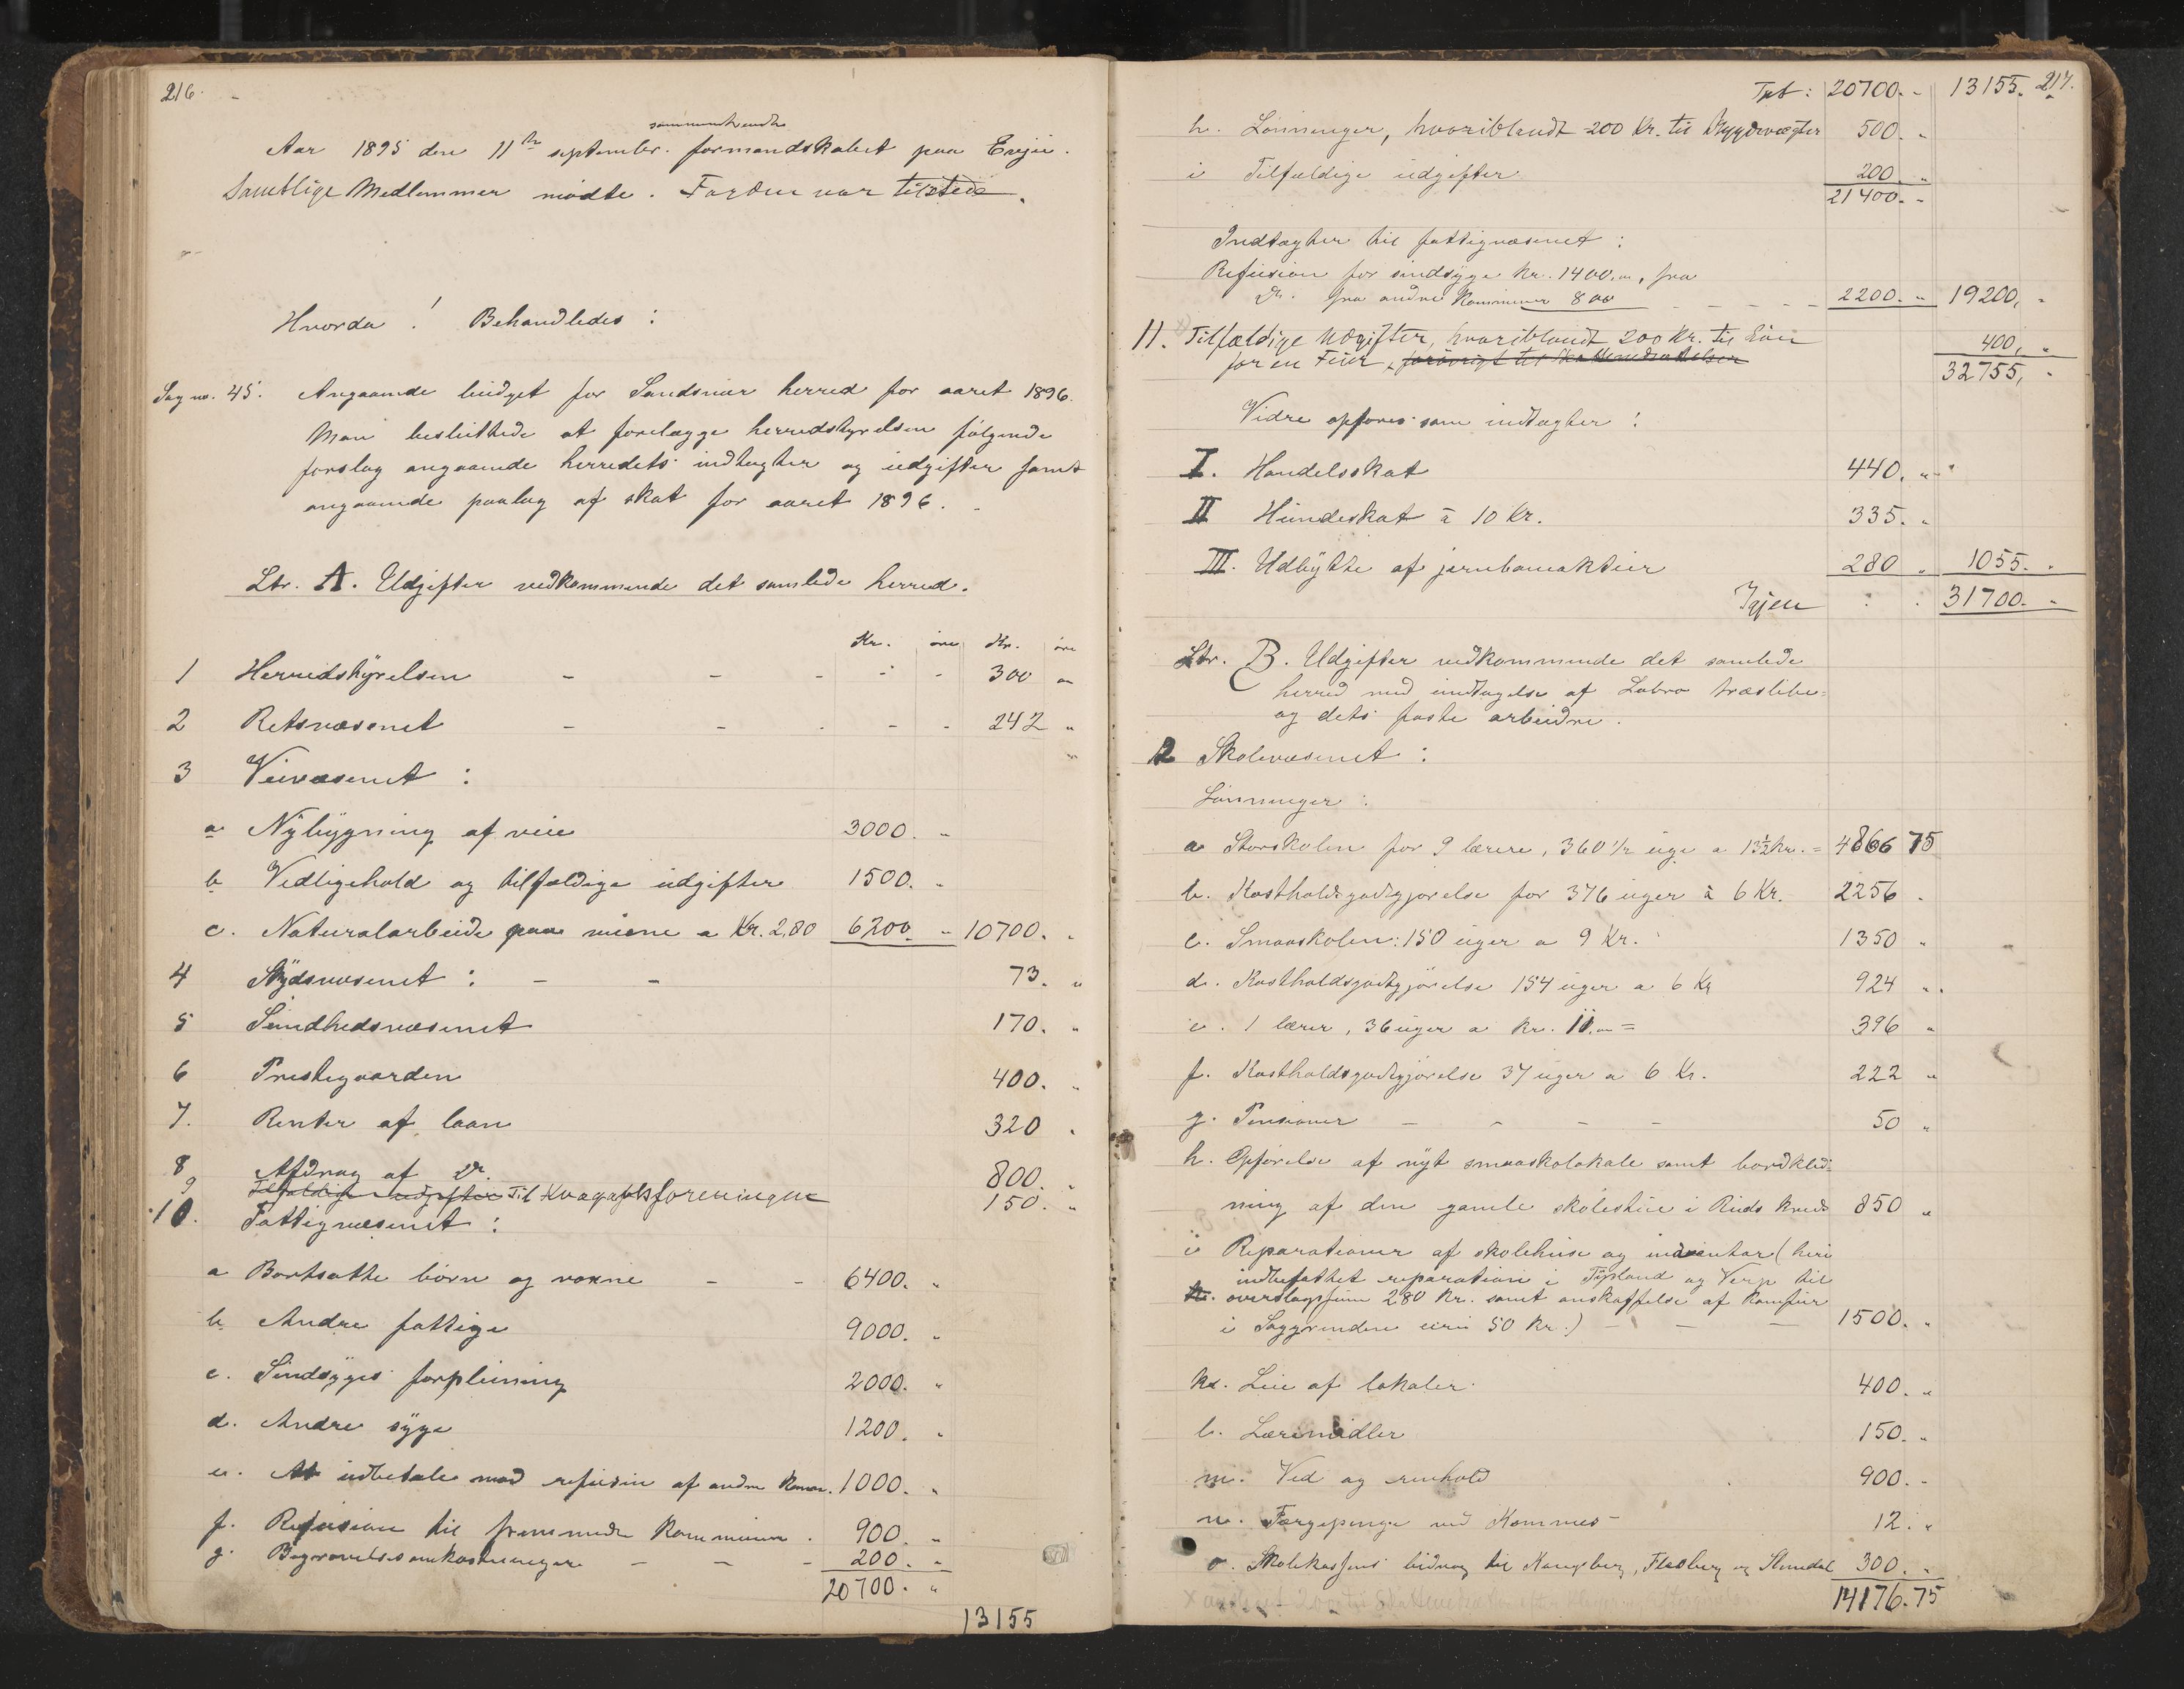 216.
sammentraadte
Aar 1895 den 11te september. formandskabet paa Enejie.
Samtlige Medlemmer mødte. Fogden var tilstede.
Hvorda! Behandledes:
Sag no. 45. Angaaende budget for Sandsvær herred for aaret 1896.
Man besluttede at forelægge herredstyrelsen følgende
forslag angaaende herredets indtægter og udgifter samt
angaaende paalæg af skat for aaret 1896.
Ltr. A. Udgifter vedkommende det samlede herred.
Kr. øre Kr. øre
1 Herredstyrelsen - - - - - 300 "
2 Retsvæsenet - - - - - 242 "
3 Veivæsenet:
a Nybygning af veie 3000. "
b Vedligehold og tilfældige udgifter 1500. "
c. Naturalarbeide paa veiene a Kr. 2,80 6200. " 10700. "
4 Skydsvæsenet: - - 73. "
5 Sundhedsvæsenet 170. "
6 Prestegaarden 400. "
7. Renter af laan 320 "
8 Afdrag af Do. 800. "
9 Tilfældige udgifter Til Kvægavlsforeningen 150. "
10. Fattigvæsenet:
a Bortsatte børn og voxne - - 6400. "
b Andre fattige 9000. "
c. Sindsyges forpleining 2000. "
d. Andre syge 1200. "
e. At udbetale mod refusion af andre Komm. 1000. "
f. Refusion til fremmede Kommuner. 900. "
g. Begravelsesomkostninger - - - 200. "
20700. "
13155
217.
Tpt: 20700. - 13155.
h. Lønninger, hvoriblandt 200 Kr. til Bygdevægter 500. "
i Tilfældige udgifter 200 "
21400. -
Indtægter til fattigvæsenet:
Refusion for sindsyge Kr. 1400.00, fra
Do. fra andre Kommuner 800 - - - - 2200. " 19200, "
11. Tilfældige Udgifter, hvoriblandt 200 Kr. til Løn 400, "
for en Feier, forøvrigt til Skattenedsættelser 32755, "
Vidre opføres som indtægter:
I. Handelsskat 440. "
II Hundeskat à 10 Kr. 335. "
III. Udbytte af jernbaneaktier 280 " 1055. "
Igjen : . 31700. "
Ltr. B. Udgifter vedkommende det samlede
herred med undtagelse af Labro træsliberi
og dets faste arbeidre.
12 Skolevæsenet:
Lønninger:
a Storskolen for 9 lærere, 360 1/2 uge a 13 1/2 kr. = 4866 75
b. Kostholdsgodtgjørelse for 376 uger à 6 Kr. 2256 "
c. Smaaskolen: 150 uger a 9 Kr. 1350 "
d. Kostholdsgodtgjørelse 154 uger a 6 Kr 924 "
e. 1 lærer, 36 uger a Kr. 11.00 = 396 "
f. Kostholdsgodtgjørelse 37 uger a 6 Kr. 222 "
g. Pensioner - - - - 50 "
h. Opførelse af nyt smaaskolokale samt bordklæd-
ning af den gamle skolestue i Ruds kreds 850 "
i Reparationer af skolehuse og inventar (heri
indbefattet reparation i Tufsland og Verp til
overslagssum 280 Kr. samt anskaffelse af komfur
i Saggrenden 50 Kr.) - - - 1500. "
k. Leie af lokaler 400. "
l. Læremidler 150. "
m. Ved og renhold 900. -
n. Færgepenge ved Kommes - 12. "
o. Skolekassens bidrag til Kongsberg, Flesberg og Slemdal 300. "
14176.75